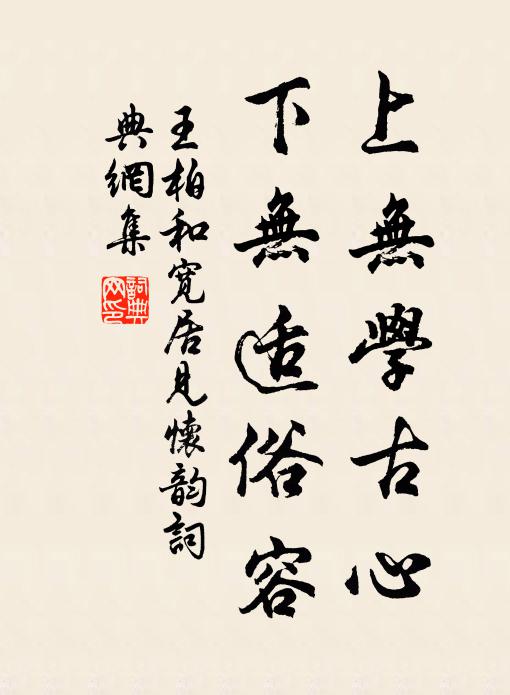 上無學古心
下無适俗容
王柏和寬居見懷韵詞
典網集
詞典
网印